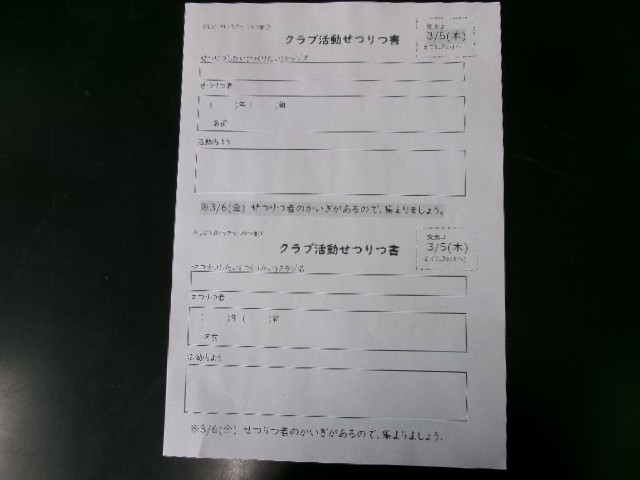 クラブ活動せつりつ書
3/5(木)
せつりつ者
( )年( )組
名前
活動内よう
※3/6(金) せつりつ者のかいぎがあるので、集まりましょう。
クラブ活動せつりつ書
3/5(木)
せつりつしたい(つくりたい)クラブ名
せつりつ者
( )年( )組
名前
活動内よう
※3/6(金) せつりつ者のかいぎがあるので、集まりましょう。